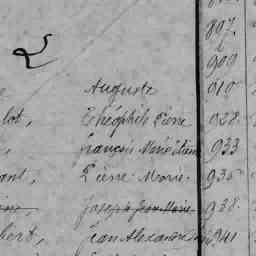 897
L 909
Auguste 910
lot, Théophile Pierre 928
François Marie Etienne 933
ant, Pierre Marie. 935
Joseph Jean Marie 938
bert, Jean Alexandre 941